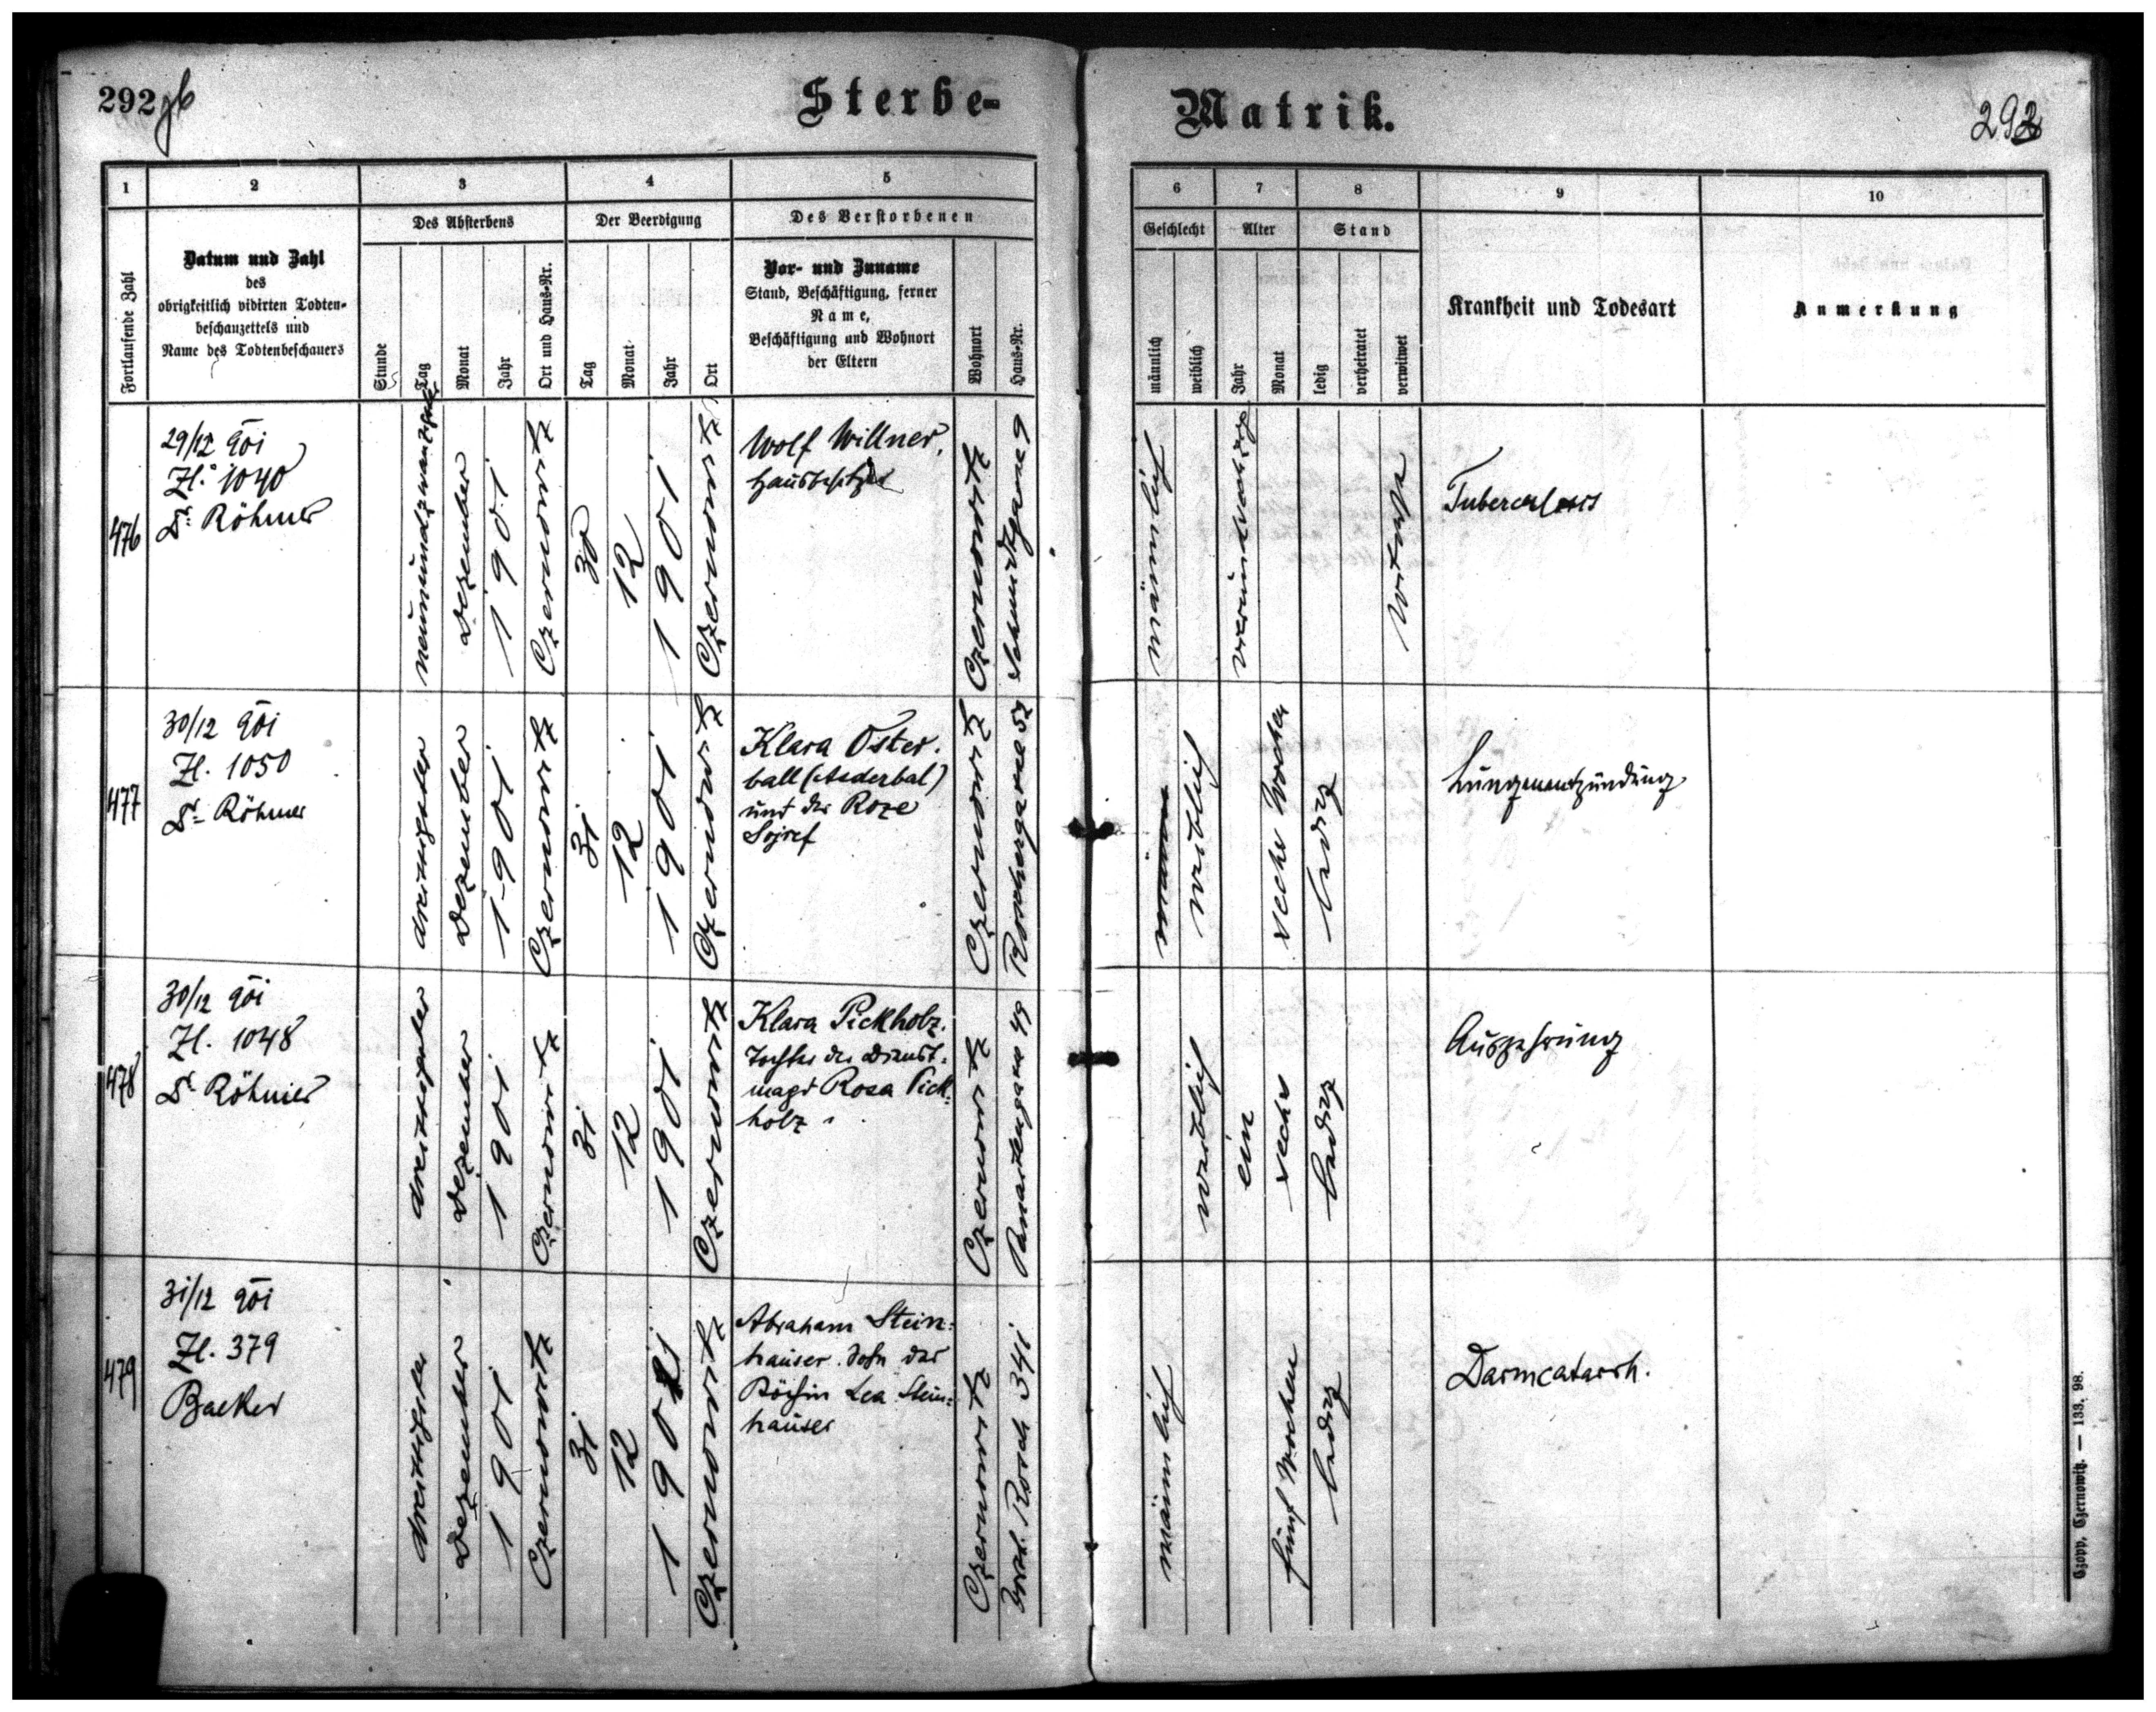 292
Sterbe-
Matrik.
1
2
3
4
5
6
7
8
9
10
Des Absterbens
Der Beerdigung
Des Verstorbenen
Geschlecht
Alter
Stand
Fortlaufende Zahl
Datum und Zahl
des
obrigkeitlich vidirten Todten-
beschauzettels und
Name des Todtenbeschauers
Stunde
Tag
Monat
Jahr
Ort und Haus-Nr.
Tag
Monat
Jahr
Ort
Vor- und Zuname
Stand, Beschäftigung, ferner
Name,
Beschäftigung und Wohnort
der Eltern
Wohnort
Haus-Nr.
männlich
weiblich
Jahr
Monat
ledig
verheiratet
verwitwet
Krankheit und Todesart
Anmerkung
476
29/12 901
Zl. 1040
Dr. Röhmer
neunundzwanzigste
Dezember
1901
Czernowitz
30
12
1901
Czernowitz
Wolf Willner,
Hausbesitzer
Czernowitz
Schmidtgasse 9
männlich
Tuberculosis
477
30/12 901
Zl. 1050
Dr. Röhmer
dreissigster
Dezember
1901
Czernowitz
31
12
1901
Czernowitz
Klara Oster-
ball (Anderbal)
und der Roze
Sojref
Czernowitz
männ
weiblich
sechs Wochen
ledig
Lungenentzündung
478
30/12 901
Zl. 1048
Dr. Röhmer
dreissigster
Dezember
1901
Czernowitz
31
12
1901
Czernowitz
Klara Pickholz.
Tochter der Dienst-
magd Rosa Pick-
holz
Czernowitz
weiblich
ein
sechs
ledig
Auszehrung
479
31/12 901
Zl. 379
Backer
dreissigster
Dezember
1901
Czernowitz
31
12
1901
Czernowitz
Abraham Stein-
hauser. Sohn der
Köchin Lea Stein-
hauser
Czernowitz
341
männlich
fünf Wochen
ledig
Darmcatarrh.
Czopp, Czernowitz. — 133. 98.